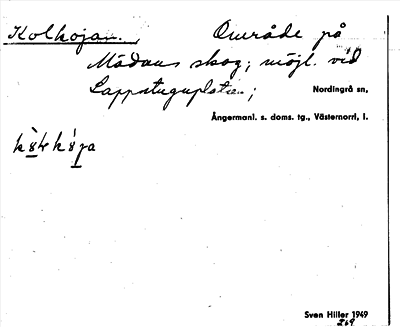 Kolkojan., Område på
Mädans skog; möjl. vid
Lappstuguplatsen;
Nordingrå sn,
Ångermanl. s. doms. tg., Västernorrl, l.
Sven Hiller 1949
269